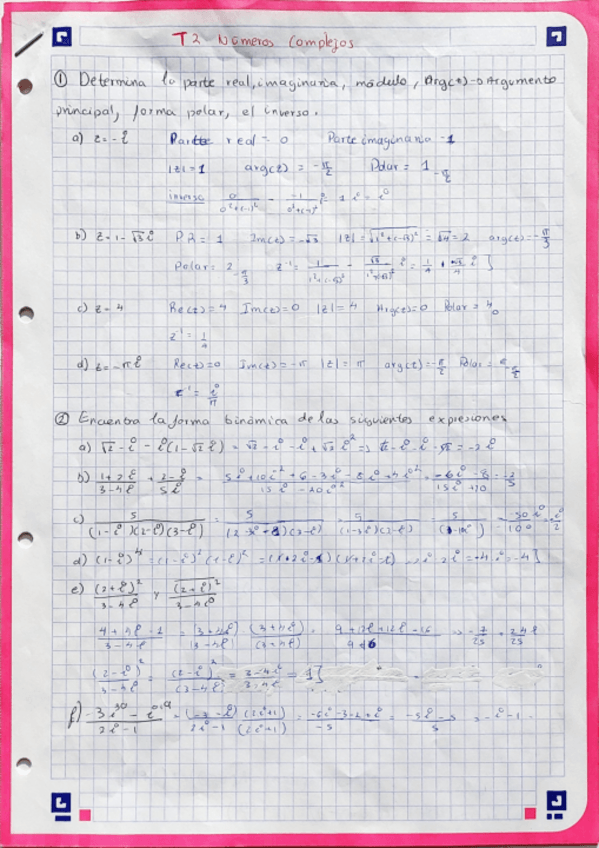 T2 Números Complejos
① Determina la parte real, imaginaria, módulo, Arg(z)→Argumento
principal, forma polar, el inverso.
a) z = -i Parte real = 0 Parte imaginaria -1
|z| = 1 arg(z) = -π/2 Polar = 1_{-π/2}
inverso 0/(0²+(-1)²) - (-1)/(0²+(-1)²) i = 1 i = i
b) z = 1-√3 i P.R = 1 Im(z) = -√3 |z| = √(1²+(-√3)²) = √4 = 2 arg(z) = -π/3
Polar = 2_{-π/3} z⁻¹ = 1/(1²+(-√3)²) - √3/(1²+(√3)²) i = 1/4 + √3/4 i ]
c) z = 4 Re(z) = 4 Im(z) = 0 |z| = 4 Arg(z) = 0 Polar = 4_0
z⁻¹ = 1/4
d) z = -πi Re(z) = 0 Im(z) = -π |z| = π arg(z) = -π/2 Polar =
z⁻¹ = i/π
② Encuentra la forma binómica de las siguientes expresiones
a) √2 - i - i(1-√2 i) = √2 - i - i + √2 i² => √2 - i - i - √2 = -2i
b) (1+2i)/(3-4i) + (2-i)/5i = (5i+10i²+6-3i-8i+4i²)/(15i-20i²) = (-6i-8)/(15i+20) = -2/5
c) 5/((1-i)(2-i)(3-i)) = 5/((2-3i-1)(3-i)) = 5/((1-3i)(3-i)) = 5/(-10i) = -50i/-100 = i/2
d) (1-i)⁴ = (1-i)²(1-i)² =
e) (2+i)²/(3-4i) y (2+i)²/(3-4i)
(4+4i-1)/(3-4i) = (3+4i)/(3-4i) (3+4i)/(3+4i) = (9+12i+12i-16)/(9+16) => -7/25 + 24i/25
(2-i)²/(3-4i) = (2-i)²/(3-4i) = (3-4i)/(3-4i) = 1]
f) (-3i³⁰ - i¹⁹)/(2i-1) = (2i+1)/(2i+1) = = (-5i-5)/5 = -i-1